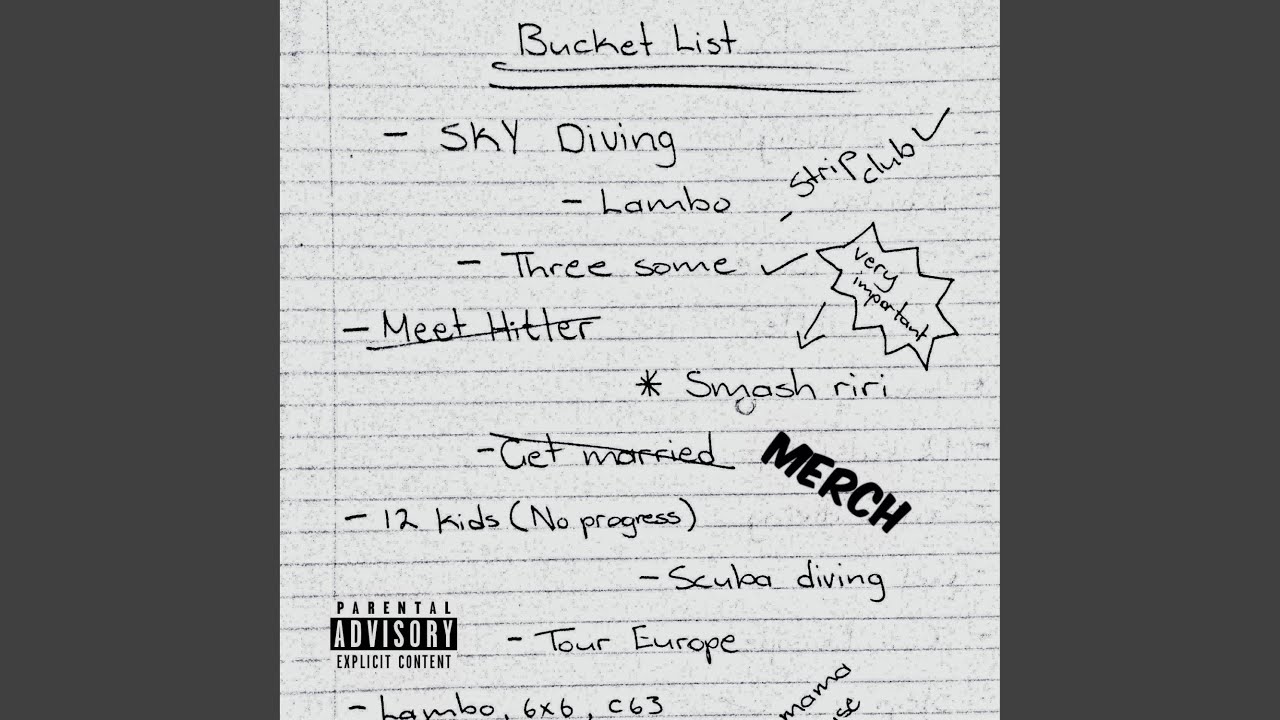 Bucket List
- SKY Diving
- Strip club ✓
- Lambo
- Three some ✓
very important
- Meet Hitler
* Smash riri
- Get married
MERCH
- 12 kids (No progress)
- Scuba diving
PARENTAL
ADVISORY
EXPLICIT CONTENT
- Tour Europe
- Lambo, 6x6, C63
mama